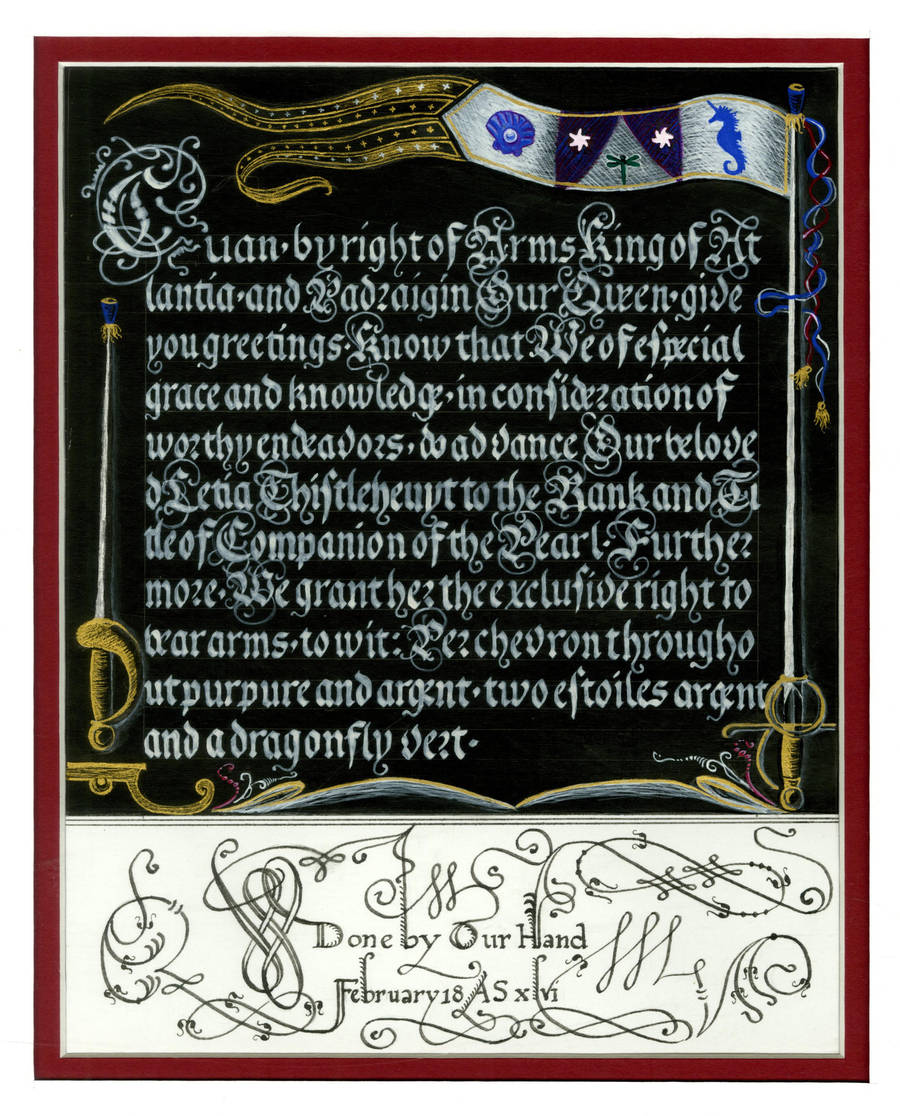 Cuan · by right of Arms King of At
lantia · and Padraigin Our Qween · give
you greetings · Know that We of eſpecial
grace and knowledge · in conſideration of
worthy endeavors · do advance Our belove
d Letia Thiſtleheuyt to the Rank and Ti
tle of Companion of the Pearl · Further
more · We grant her the excluſive right to
bear arms · to wit: Per chevron througho
ut purpure and argent · two eſtoiles argent
and a dragonfly vert ·
Done by Our Hand
February 18 AS xlvi